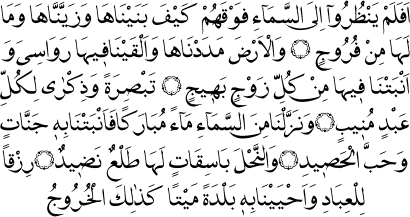 اَفَلَمْ يَنْظُرُٓوا اِلَى السَّمَٓاءِ فَوْقَهُمْ كَيْفَ بَنَيْنَاهَا وَزَيَّنَّاهَا وَمَا
لَهَا مِنْ فُرُوجٍ ۝ وَالْاَرْضَ مَدَدْنَاهَا وَاَلْقَيْنَا فٖيهَا رَوَاسِىَ وَ
اَنْبَتْنَا فٖيهَا مِنْ كُلِّ زَوْجٍ بَهٖيجٍ ۝ تَبْصِرَةً وَذِكْرٰى لِكُلِّ
عَبْدٍ مُنٖيبٍ ۝ وَنَزَّلْنَا مِنَ السَّمَٓاءِ مَٓاءً مُبَارَكًا فَاَنْبَتْنَا بِهٖ جَنَّاتٍ
وَحَبَّ الْحَصٖيدِ ۝ وَالنَّخْلَ بَاسِقَاتٍ لَهَا طَلْعٌ نَضٖيدٌ ۝ رِزْقًا
لِلْعِبَادِ وَاَحْيَيْنَا بِهٖ بَلْدَةً مَيْتًا كَذٰلِكَ الْخُرُوجُ